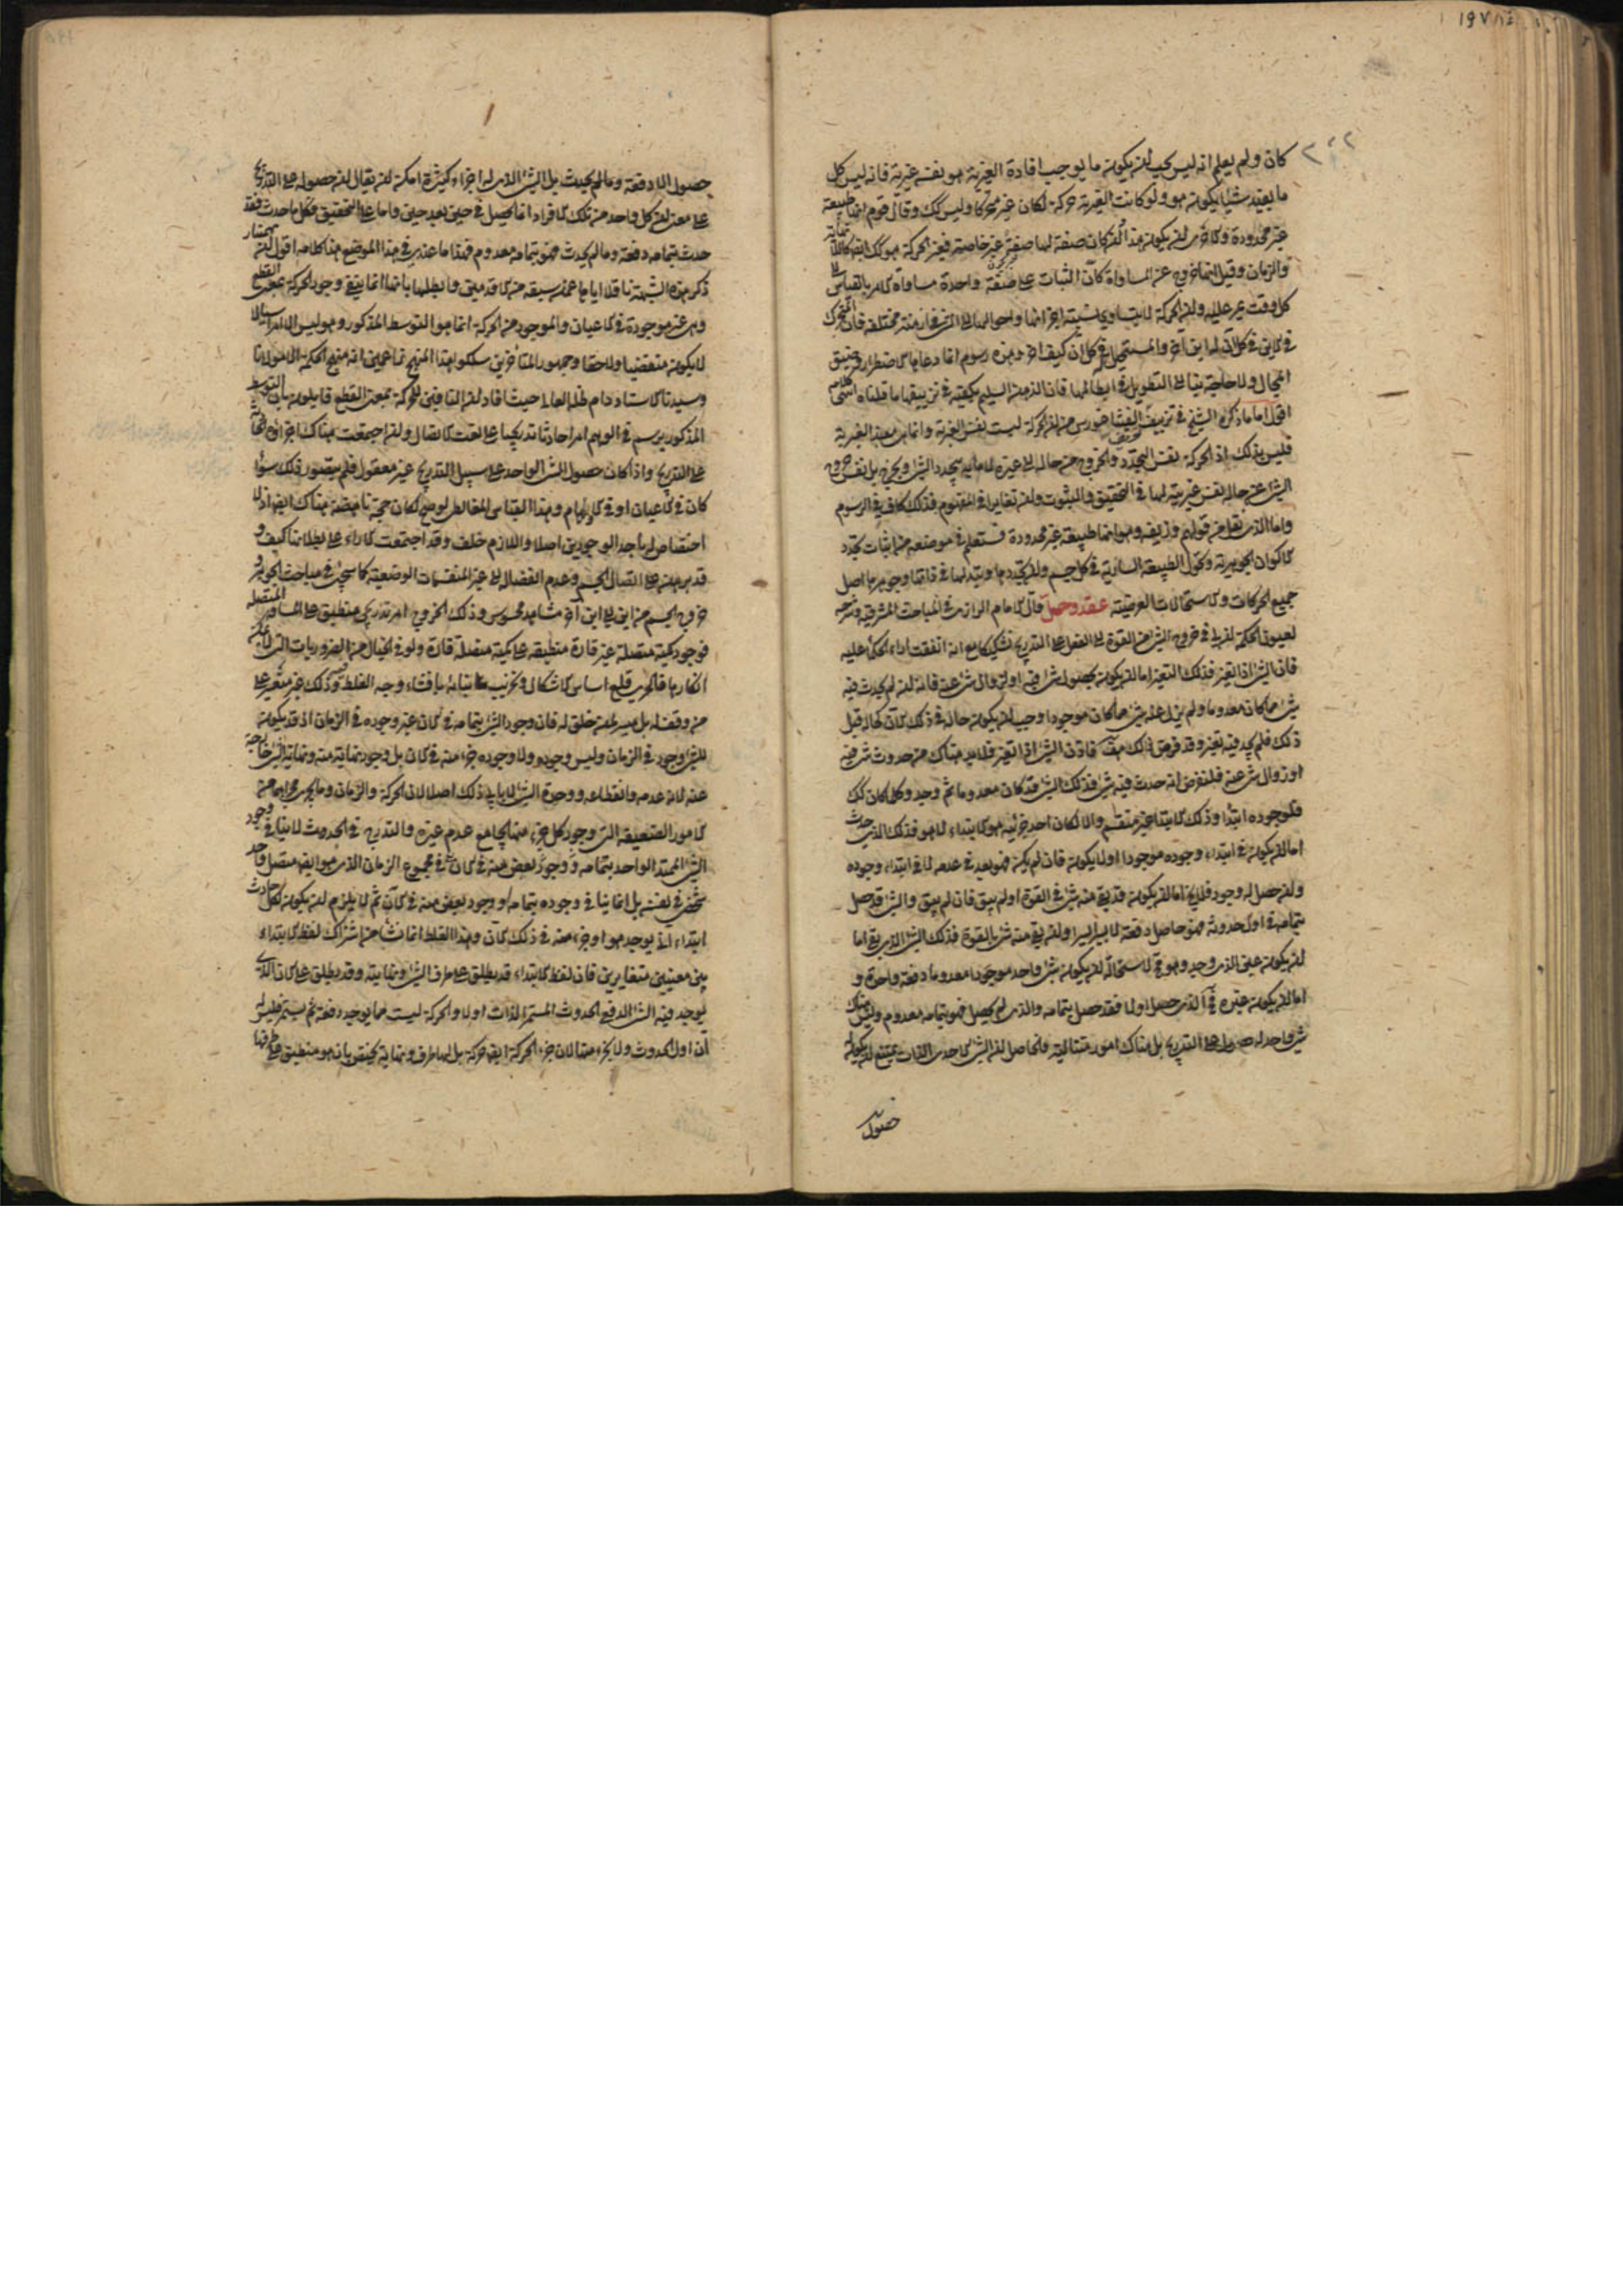 كان ولم يعلم انه ليس يجب ان يكون ما يوجب افادة الغيرية هو بنفسه غيرية فانه ليس كل
ما يفيد شيئا يكون هو ولو كانت الغيرية حركة لكان كل غير متحركا وليس كك وقال قوم انها طبيعة
غير محدودة والاحرى ان يكون هذا ان كان صفة لها صفة غير خاصة فغير الحركة ما هو كك ايضا كاللانهاية
والزمان وقيل انها خروج عن المساواة كأن الثبات على صفة واحدة مساواة للامر بالقياس الى
كل وقت يمر عليه وان الحركة لا يتساوى نسبة اجزائها واحوالها الى الشئ في ازمنة مختلفة فان المتحرك
في الاين في كل آن له اين آخر والمستحيل في كل آن كيف آخر وهذه رسوم انما دعا اليها الاضطرار وضيق
المجال ولا حاجة بنا الى التطويل في ابطالها فان الذهن السليم يكفيه في تزييفها ما قلناه انتهى كلامه
اقول اما ما ذكره الشيخ في تزييف تعريف الفيثاغورس من ان الحركة ليست نفس الغيرية وانما هي مفيد الغيرية
فليس بذلك اذ الحركة نفس التجدد والخروج من حالة الى غيرها لا ما به يتجدد الشئ ويخرج بل نفس خروج
الشئ عن حاله نفس غيرية لها في التحقيق والثبوت وان تغايرا في المفهوم فذلك كاف في الرسوم
واما الذي نقل من قولهم وزيفه وهو انها طبيعة غير محدودة فستعلم في موضعه من اثبات تجدد
الاكوان الجوهرية وتحول الطبيعة السارية في كل جسم وان تجددها وتبدلها في ذاتها وجوهرها اصل
جميع الحركات والاستحالات العرضية عقد وحل قال الامام الرازي في المباحث المشرقية وشرحه
لعيون الحكمة ان لي في خروج الشئ من القوة الى الفعل على التدريج تشكيكا مع انه اتفقت آراء الحكماء عليه
فان الشئ اذا تغير فذلك التغير اما ان يكون بحصول شئ فيه او بزوال شئ عنه فانه ان لم يحدث فيه
شئ مما كان معدوما ولم يزل عنه شئ مما كان موجودا وجب ان يكون حاله في ذلك الآن كحاله قبل
ذلك فلم يوجد فيه تغير وقد فرض ذلك هف فاذن الشئ اذا تغير فلا بد هناك من حدوث شئ فيه
او زوال شئ عنه فلنفرض انه حدث فيه شئ فذلك الشئ قد كان معدوما ثم وجد وكل ما كان كك
فلوجوده ابتداء وذلك الابتداء غير منقسم والا لكان احد جزئيه هو الابتداء لا هو فذلك الذي حدث
اما ان يكون في ابتداء وجوده موجودا او لا يكون فان لم يكن فهو بعد في عدمه لا في ابتداء وجوده
وان حصل له وجود فلا يخ اما ان يكون قد بقي منه شئ في القوة او لم يبق فان لم يبق والشئ قد حصل
بتمامه في اول حدوثه فهو حاصل دفعة لا يسيرا يسيرا وان بقي منه شئ بالقوة فذلك الشئ الذي بقي اما
ان يكون عين الذي وجد وهو مح لاستحالة ان يكون شئ واحد موجودا معدوما دفعة واحدة و
اما ان يكون غيره فح الذي حصل اولا فقد حصل بتمامه والذي لم يحصل فهو بتمامه معدوم وليس هناك
شئ واحد له حصول على التدريج بل هناك امور متتالية فالحاصل ان الشئ الاحدي الذات يمتنع ان يكون له
حصول
حصول الا دفعة وما لم يحدث بل الشئ الذي له اجزاء كثيرة امكن ان يقال ان حصوله على التدريج
على معنى ان كل واحد من تلك الافراد انما يحصل في حين بعد حين واما على التحقيق فكل ما حدث فقد
حدث بتمامه دفعة وما لم يحدث فهو بتمامه معدوم فهذا ما عندي في هذا الموضع هذا كلامه اقول ان بهمنيار
ذكر هذه الشبهة ناقلا اياها عمن سبقه من الاقدمين وابطلها بانها انما ينفي وجود الحركة بمعنى القطع
وهي غير موجودة في الاعيان والموجود من الحركة انما هو التوسط المذكور وهو ليس الا امرا سيالا
لا يكون متقضيا ولاحقا وجمهور المتأخرين سلكوا هذا المنهج زاعمين انه منهج الحكمة الا مولانا
وسيدنا الاستاد دام ظله العالي حيث افاد ان النافين للحركة بمعنى القطع قائلون بان التوسط
المذكور يرسم في الوهم امرا حادثا تدريجيا على نعت الاتصال وان اجتمعت هناك اجزائه
على التدريج واذا كان حصول الشئ الواحد على سبيل التدريج غير معقول فلم يتصور ذلك سواء
كان في الاعيان او في الاوهام وهذا القياس المغالطي لو صح لكان حجة ناهضة هناك ايضا اذ لا
اختصاص له باحد الوجودين اصلا واللازم خلف وقد اجتمعت الآراء على بطلانه كيف و
قد برهن على اتصال الجسم وعدم انفصاله الى غير المنقسمات الوضعية كما سيجئ في مباحث الجوهر و
خروج الجسم من اين الى اين آخر مشاهد محسوس وذلك الخروج امر تدريجي منطبق على المسافة المتصلة
فوجود كمية متصلة غير قارة منطبقة على كمية متصلة قارة ولو في الخيال من الضروريات التي لا يمكن
انكارها فالحري قلع اساس الاشكال وتخريب بنيانه بافشاء وجه الغلط فيه وذلك غير متعسر على
من وفقه له بل ميسر لمن خلق له فان وجود الشئ بتمامه في الآن غير وجوده في الزمان اذ قد يكون
للشئ وجود في الزمان وليس وجوده ولا وجود جزء منه في الآن بل وجود نهاية منه ونهاية الشئ خارجة
عنه لانه عدمه وانقطاعه ووحدة الشئ لا يأبى ذلك اصلا لان الحركة والزمان وما يجري مجراهما من
الامور الضعيفة التي وجود كل جزء منها يجامع عدم غيره والتدريج في الحدوث لا ينافي وجود
الشئ الممتد الواحد بتمامه ووجود بعض منه في الآن في مجموع الزمان الذي هو ايضا متصل واحد
شخصي في نفسه بل انما ينافي وجوده بتمامه او وجود بعض منه في الآن ثم لا يلزم ان يكون لكل حادث
ابتداء آني يوجد هو او جزء منه في ذلك الآن وهذا الغلط انما نشأ من اشتراك لفظ الابتداء
بين معنيين متغايرين فان لفظ الابتداء قد يطلق على طرف الشئ ونهايته وقد يطلق على الآن الذي
يوجد فيه الشئ الدفعي الحدوث المستمر الذات اولا والحركة ليست مما يوجد دفعة ثم يستمر فليس له
آن اول الحدوث ولا لجزء منها لان جزء الحركة ايضا حركة بل لها طرف ونهاية يختص بآن هو منطبق على طرفها